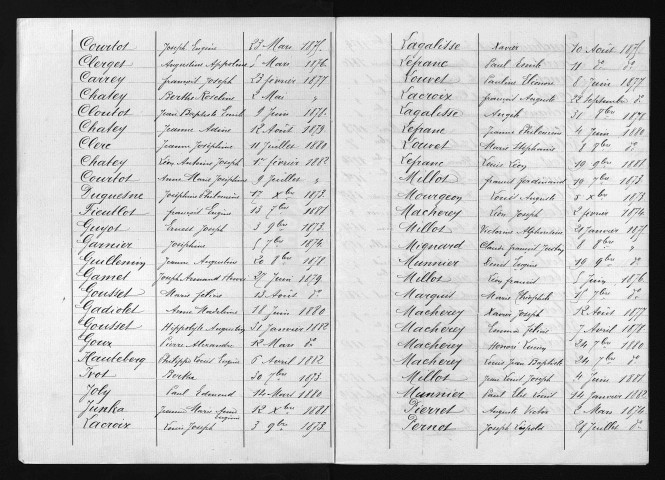 Courtot Joseph Eugène 23 Mars 1875
Clerget Augustine Appoline 5 Mars 1876
Carrey françois Joseph 23 février 1877
Chatey Berthe Roseline 2 Mai "
Cloutot Jean Baptiste Emile 9 Juin 1875
Chatey Jeanne Adine 12 Août 1879
Clerc Jeanne Joséphine 11 Juillet 1880
Chatey Léon Antoine Joseph 1er février 1882
Courtot Anne Marie Joséphine 9 Juillet "
Duquesne Joséphine Philomène 17 Xbre 1873
Tieullot françois Eugène 13 7bre 1881
Guyot Ernest Joseph 3 9bre 1873
Garnier Joséphine 5 7bre 1874
Guillemin Jeanne Augustine 20 8bre 1878
Gamet Joseph Armand Henri 27 Juin 1879
Gousset Marie Félicie 13 Août do
Gadiolet Anne Madeleine 18 Juin 1880
Gousset Hippolyte Augustin 31 Janvier 1882
Goux Pierre Alexandre 12 Mars do
Hauteberg Philippe Louis Eugène 6 Avril 1882
Ivot Bertha 30 7bre 1873
Joly Paul Edmond 14 Mars 1880
Junka Jeanne Marie Eugénie 12 Xbre 1881
Lacroix Louis Joseph 3 9bre 1873
Lagalisse Xavier 10 Août 1875
Lefranc Paul Emile 11 do do
Louvet Pauline Eléonore 8 Juin 1877
Lacroix françois Auguste 22 Septembre do
Lagalisse Angèle 31 8bre 1878
Lefranc Jeanne Philomène 4 Juin 1880
Louvet Marie Stéphanie 1 9bre do
Lefranc Louis Léon 19 9bre 1881
Millot françois ferdinand 19 7bre 1873
Mourgeon Louis Auguste 3 Xbre 1873
Macherey Léon Joseph 2 février 1874
Millot Victorine Alphonsine 21 Janvier 1875
Mignard Claude françois 8 8bre "
Munnier Denis Eugène 19 9bre do
Millot Léon françois 5 Juin 1876
Marguet Marie Théophile 15 7bre do
Macherey Xavier Joseph 12 Août 1877
Macherey Emma Félicie 7 Avril 1878
Macherey Honoré 24 7bre 1880
Macherey Louis Jean Baptiste 24 7bre do
Millot Jean Louis Joseph 4 Juin 1881
Munnier Paul Elie Louis 14 Janvier 1882
Pierret Auguste Victor 2 Mars 1876
Pernot Joseph Léopold 26 Juillet do